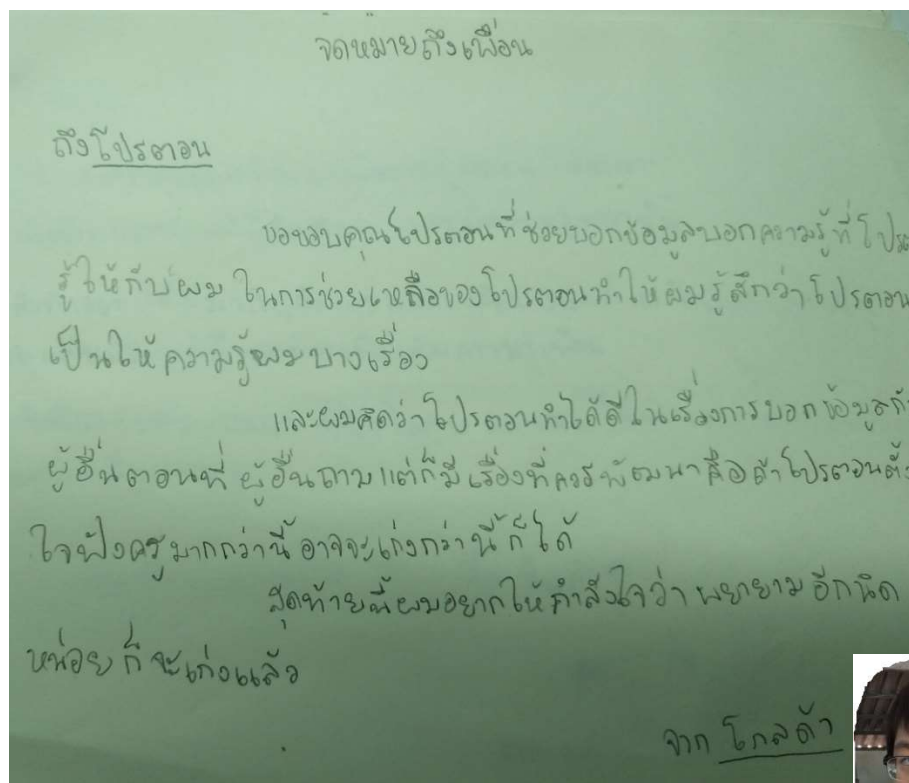 จดหมายถึงเพื่อน
ถึงโปรตอน
ขอขอบคุณโปรตอนที่ช่วยบอกข้อมูลบอกความรู้ที่โปร
รู้ให้กับผม ในการช่วยเหลือของโปรตอนทำให้ผมรู้สึกว่าโปรตอน
เป็นให้ความรู้ผมบางเรื่อง
และผมคิดว่าโปรตอนทำได้ดีในเรื่องการบอกข้อมูลกั
ผู้อื่นตอนที่ผู้อื่นถามแต่ก็มีเรื่องที่ควรพัฒนาคือถ้าโปรตอนตั้ง
ใจฟังครูมากกว่านี้อาจจะเก่งกว่านี้ก็ได้
สุดท้ายนี้ผมอยากให้กำลังใจว่า พยายามอีกนิด
หน่อยก็จะเก่งแล้ว
จาก โกลด้า